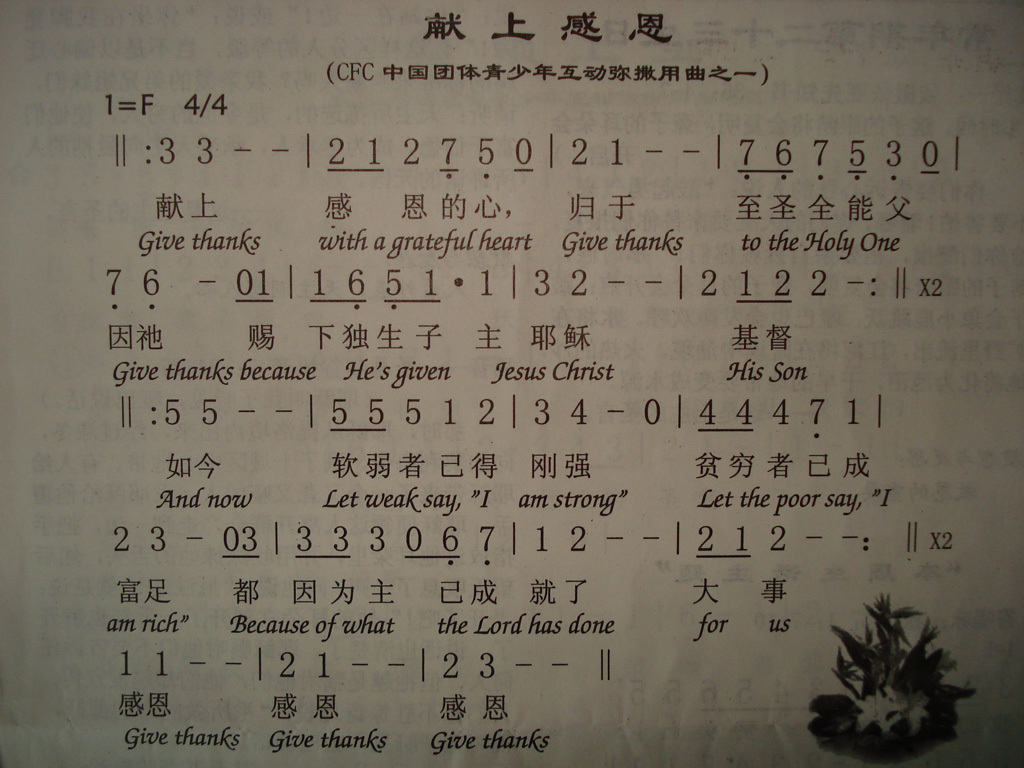 献上感恩
(CFC 中国团体青少年互动弥撒用曲之一)
1=F 4/4
‖:3 3 - - | 2 1 2 7 5 0 | 2 1 - - | 7 6 7 5 3 0 |
献上 感 恩的心, 归于 至圣全能父
Give thanks with a grateful heart Give thanks to the Holy One
7 6 - 01 | 1 6 5 1 • 1 | 3 2 - - | 2 1 2 2 -:‖ X2
因祂 赐 下独生子 主 耶稣 基督
Give thanks because He's given Jesus Christ His Son
‖:5 5 - - | 5 5 5 1 2 | 3 4 - 0 | 4 4 4 7 1 |
如今 软弱者已得 刚强 贫穷者已成
And now Let weak say, "I am strong" Let the poor say, "I
2 3 - 03 | 3 3 3 0 6 7 | 1 2 - - | 2 1 2 - -: ‖ X2
富足 都 因为主 已成 就了 大 事
am rich" Because of what the Lord has done for us
1 1 - - | 2 1 - - | 2 3 - - ‖
感恩 感恩 感恩
Give thanks Give thanks Give thanks